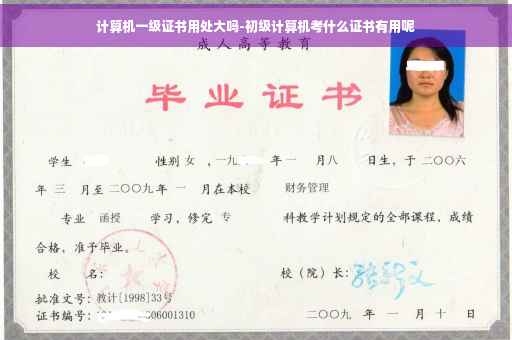 计算机一级证书用处大吗-初级计算机考什么证书有用呢
成人高等教育
毕业证书
学生 性别 女 ，一九 年 一 月八 日生，于 二〇〇六
年 三 月至 二〇〇九 年 一 月在本校 财务管理
专业 函授 学习，修完 专 科教学计划规定的全部课程，成绩
合格，准予毕业。
校 名： 校（院）长：
批准文号：教计[1998]33号
证书编号： 06001310 二〇〇九 年 一 月 十 日